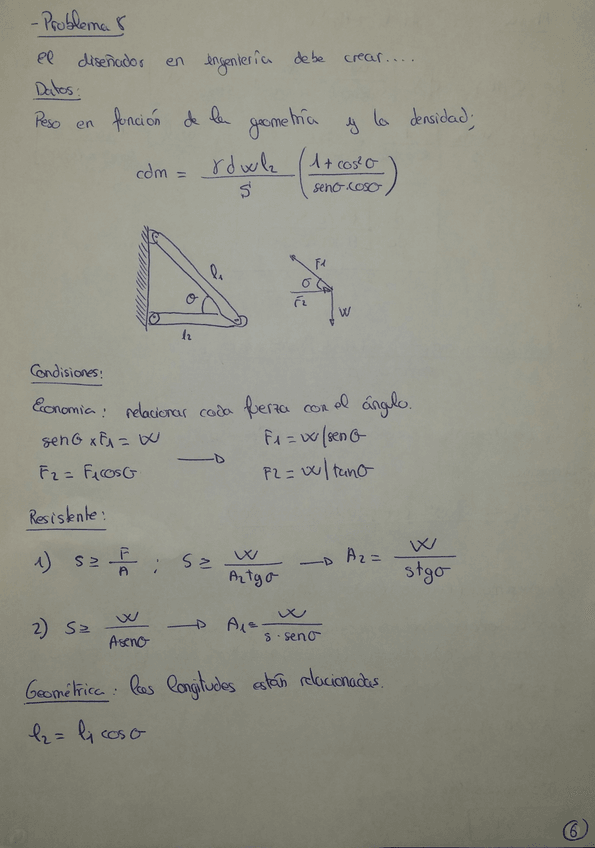 - Problema 8
el diseñados en ingeniería debe crear....
Datos:
Peso en función de la geometría y la densidad;
cdm = γdwl₂/S (1+cos²σ/senσ.cosσ)
l₁
σ
l₂
F₁
σ
F₂
W
Condisiones:
Economía: relacionar cada fuerza con el ángulo.
senσ x F₁ = W → F₁ = W/senσ
F₂ = F₁cosσ F₂ = W/tanσ
Resistente:
1) S ≥ F/A ; S ≥ W/A₂tgσ → A₂ = W/stgσ
2) S ≥ W/Asenσ → A₁ = W/s·senσ
Geométrica: las longitudes están relacionadas.
l₂ = l₁ cosσ
6